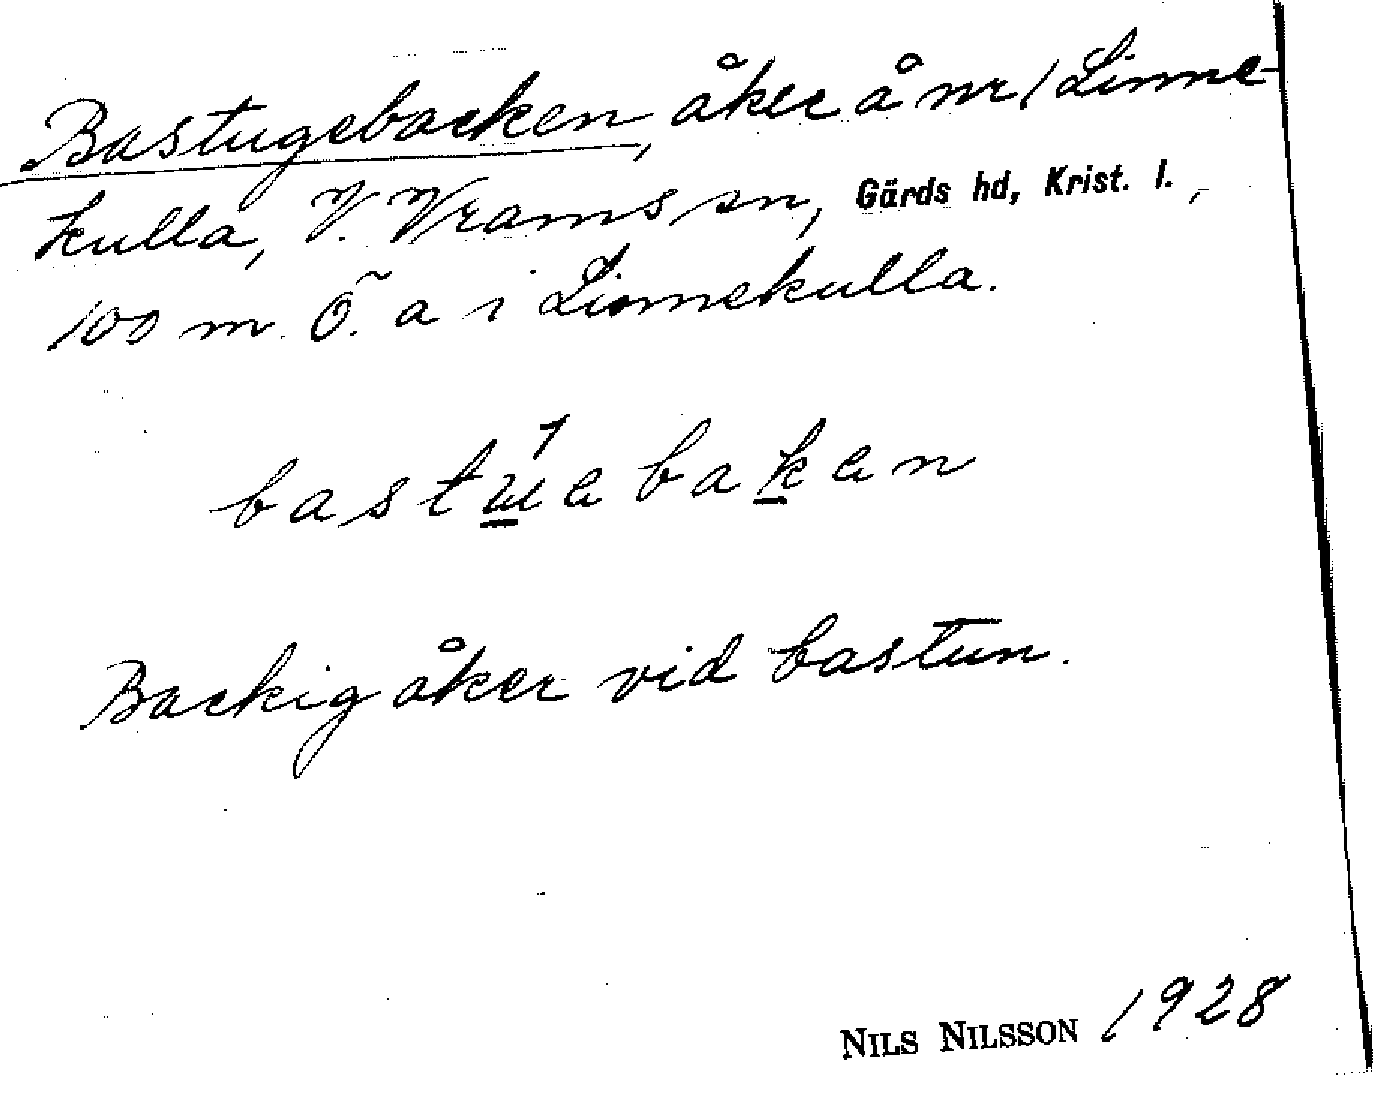 Bastugebacken, åker å nr 1 Linne-
kulla, V. Vrams sn, Gärds hd, Krist. l.,
100 m. Ö. a i Linnekulla.
bastuabakan
Backig åker vid bastun.
NILS NILSSON 1928